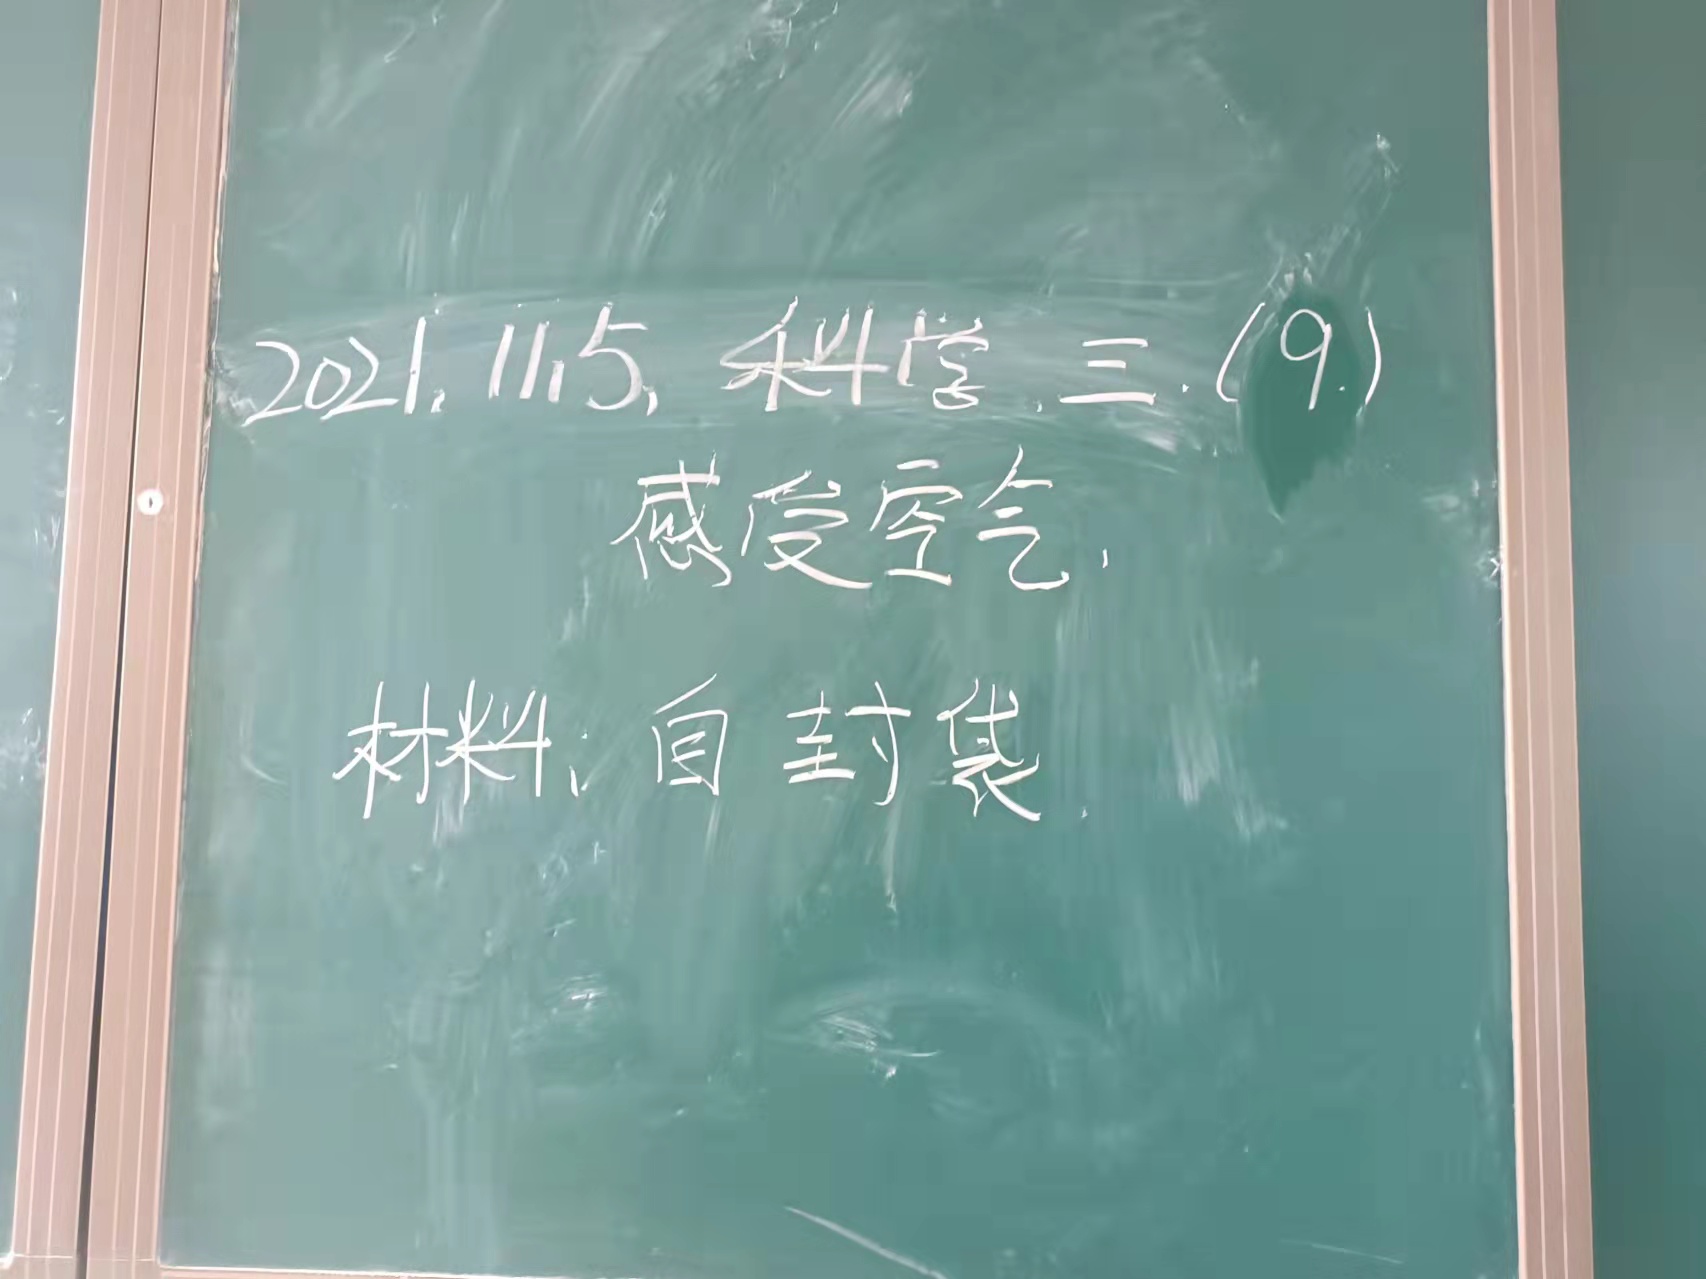 2021.11.5. 科学.三.(9.)
感受空气.
材料:自封袋.